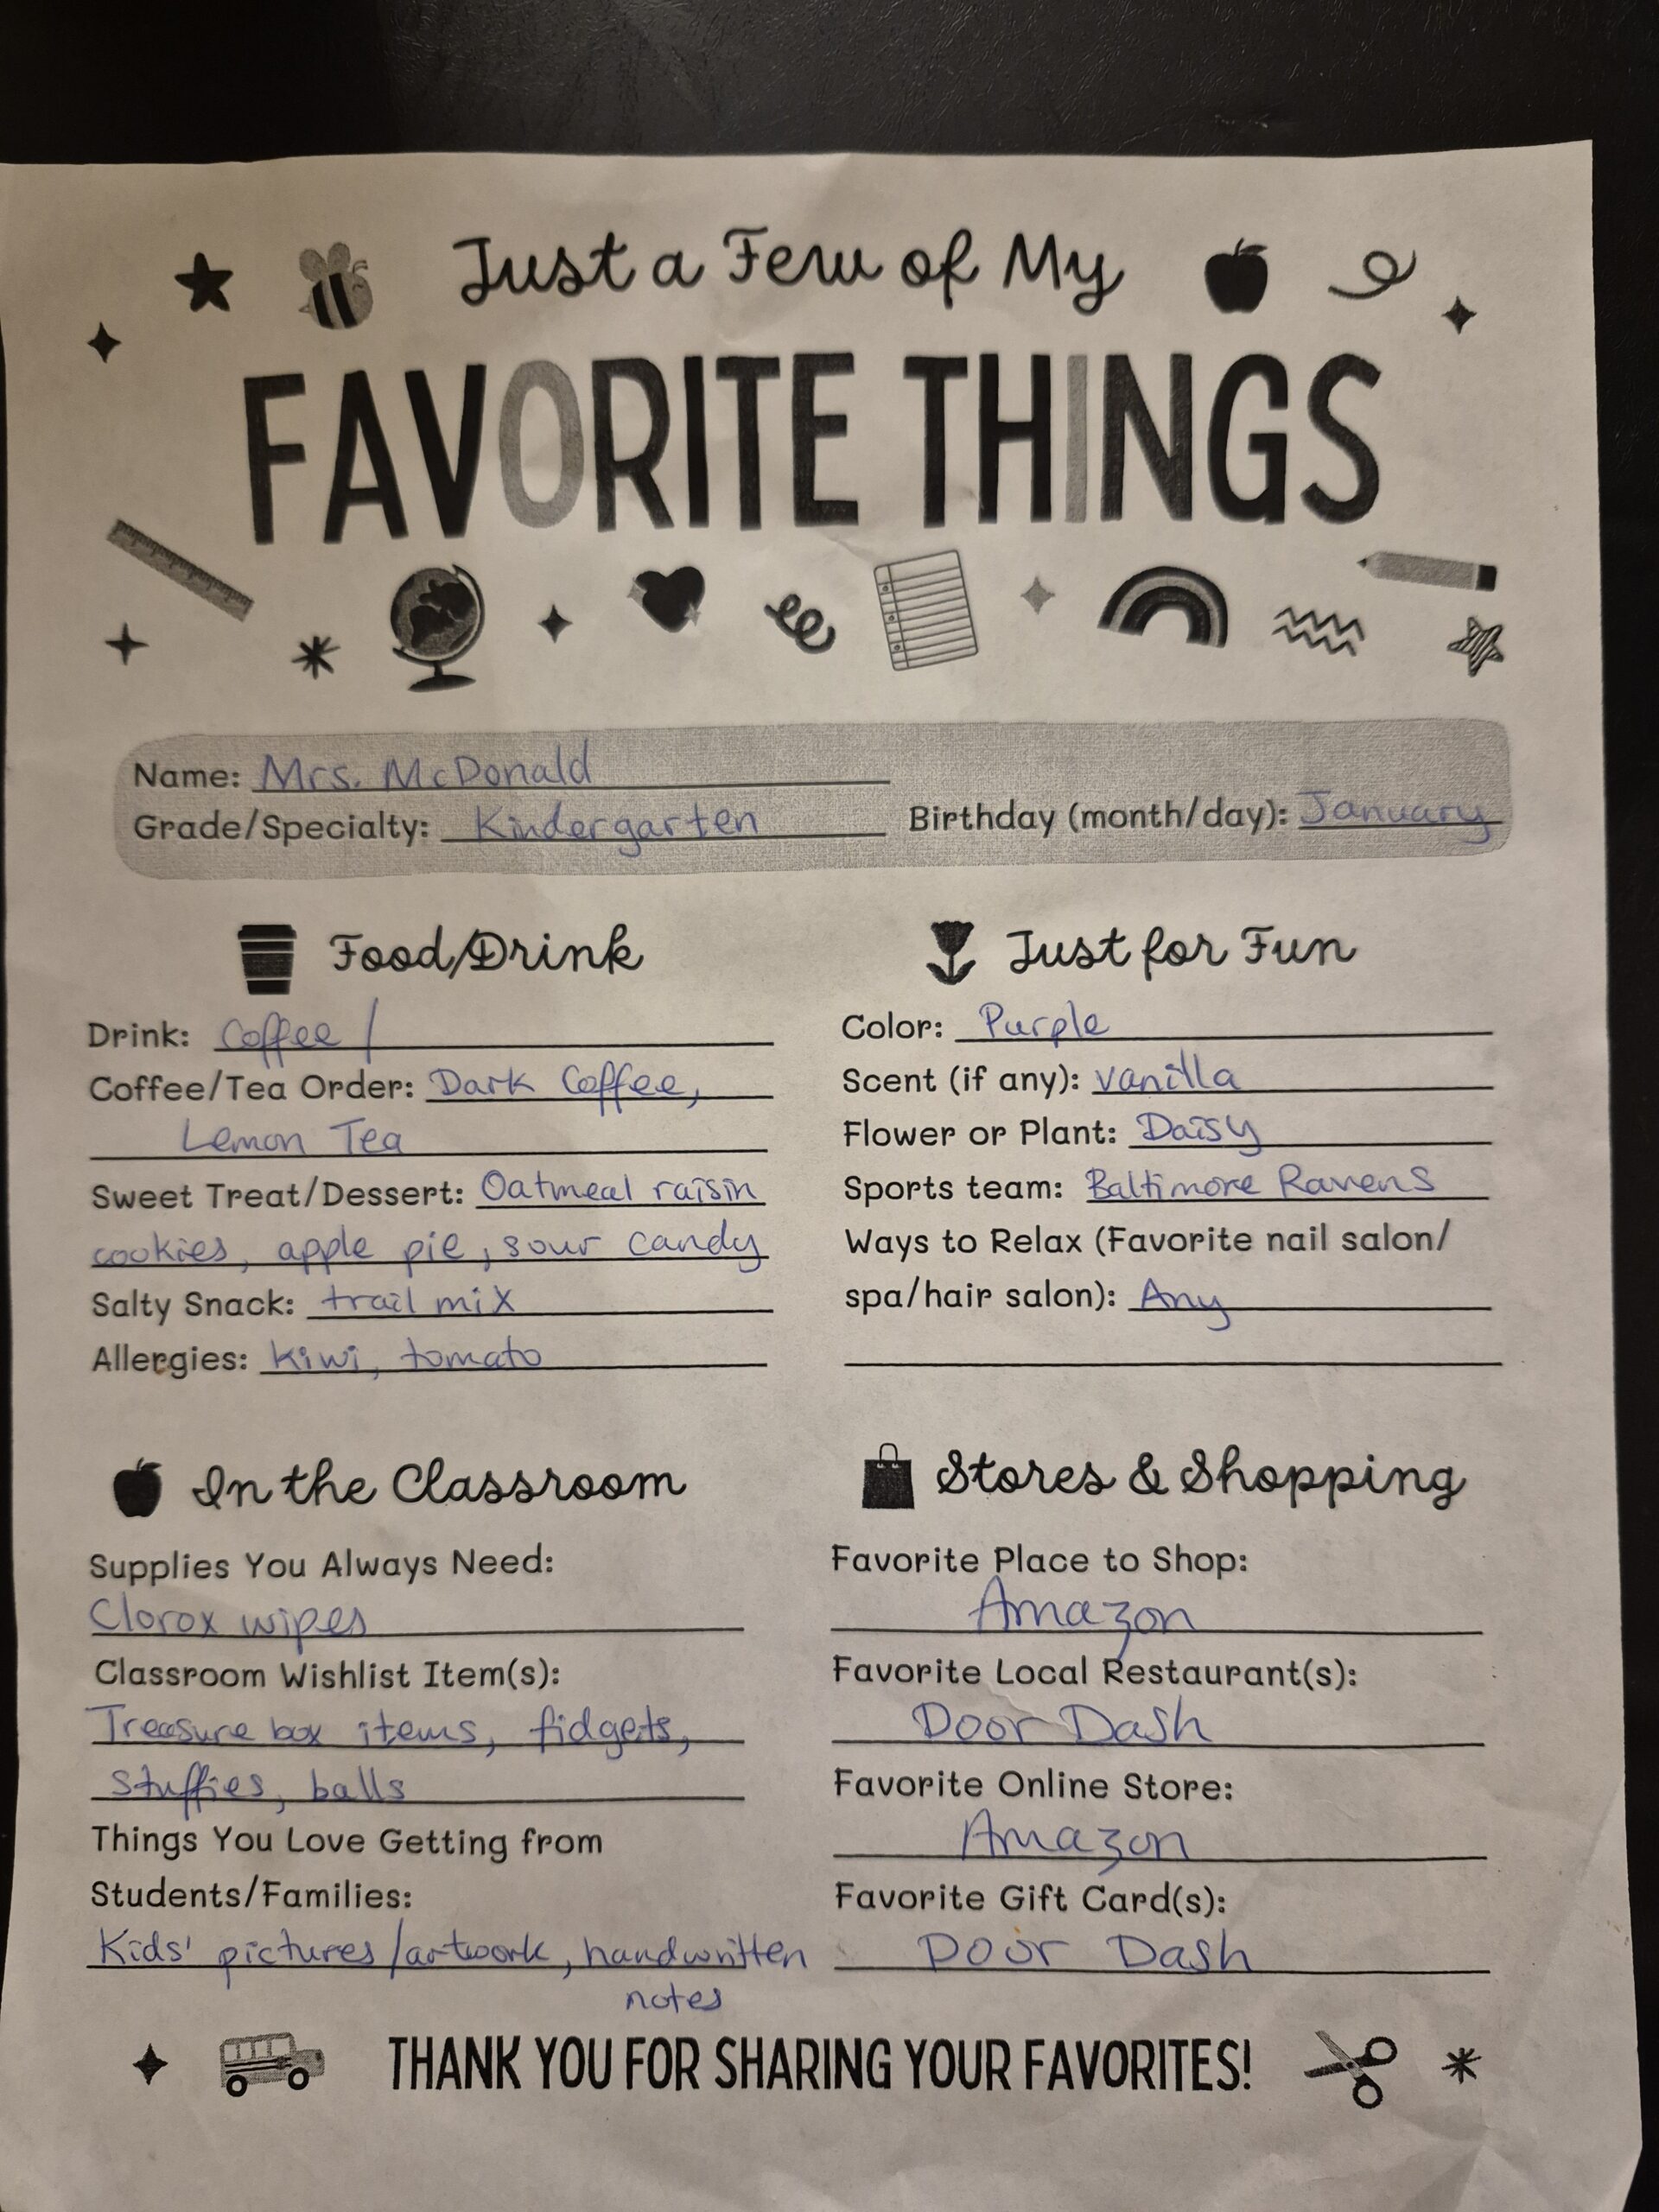 Just a Few of My
FAVORITE THINGS
Name: Mrs. McDonald
Grade/Specialty: Kindergarten
Birthday (month/day): January
Food/Drink
Drink: Coffee /
Coffee/Tea Order: Dark Coffee,
Lemon Tea
Sweet Treat/Dessert: Oatmeal raisin
cookies, apple pie, sour candy
Salty Snack: trail mix
Allergies: kiwi, tomato
Just for Fun
Color: Purple
Scent (if any): vanilla
Flower or Plant: Daisy
Sports team: Baltimore Ravens
Ways to Relax (Favorite nail salon/
spa/hair salon): Any
In the Classroom
Supplies You Always Need:
Clorox wipes
Classroom Wishlist Item(s):
Treasure box items, fidgets,
stuffies, balls
Things You Love Getting from
Students/Families:
Kids' pictures/artwork, handwritten
notes
Stores & Shopping
Favorite Place to Shop:
Amazon
Favorite Local Restaurant(s):
Door Dash
Favorite Online Store:
Amazon
Favorite Gift Card(s):
Door Dash
THANK YOU FOR SHARING YOUR FAVORITES!